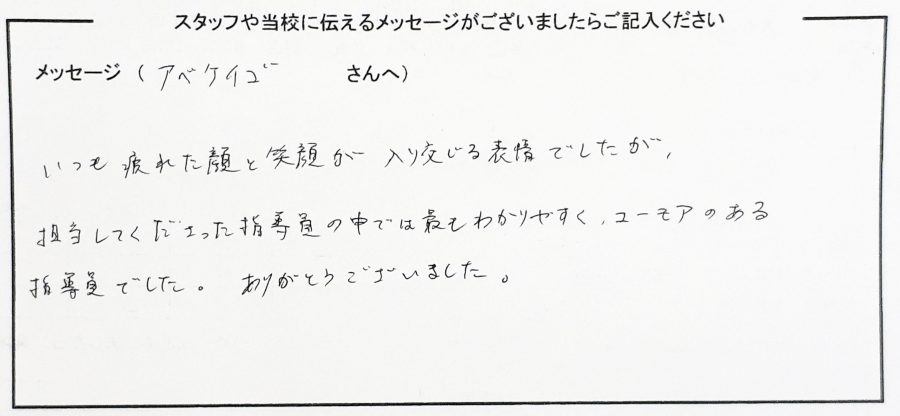 スタッフや当校に伝えるメッセージがございましたらご記入ください
メッセージ ( アベケイゴ さんへ)
いつも疲れた顔と笑顔が入り交じる表情でしたが、
担当してくださった指導員の中では最もわかりやすく、ユーモアのある
指導員でした。ありがとうございました。